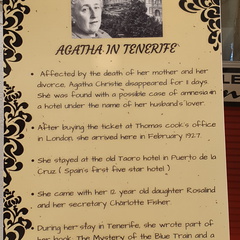 AGATHA IN TENERIFE
• Affected by the death of her mother and her
divorce, Agatha Christie disappeared for 11 days.
She was found with a possible case of amnesia in
a hotel under the name of her husband's lover.
• After buying the ticket at Thomas Cook's office
in London, she arrived here in February 1927.
• She stayed at the old Taoro hotel in Puerto de la
Cruz ( Spain's first five star hotel )
• She came with her 12 year old daughter Rosalind
and her secretary Charlotte Fisher.
• During her stay in Tenerife, she wrote part of
her book, The Mystery of the Blue Train and a
LE